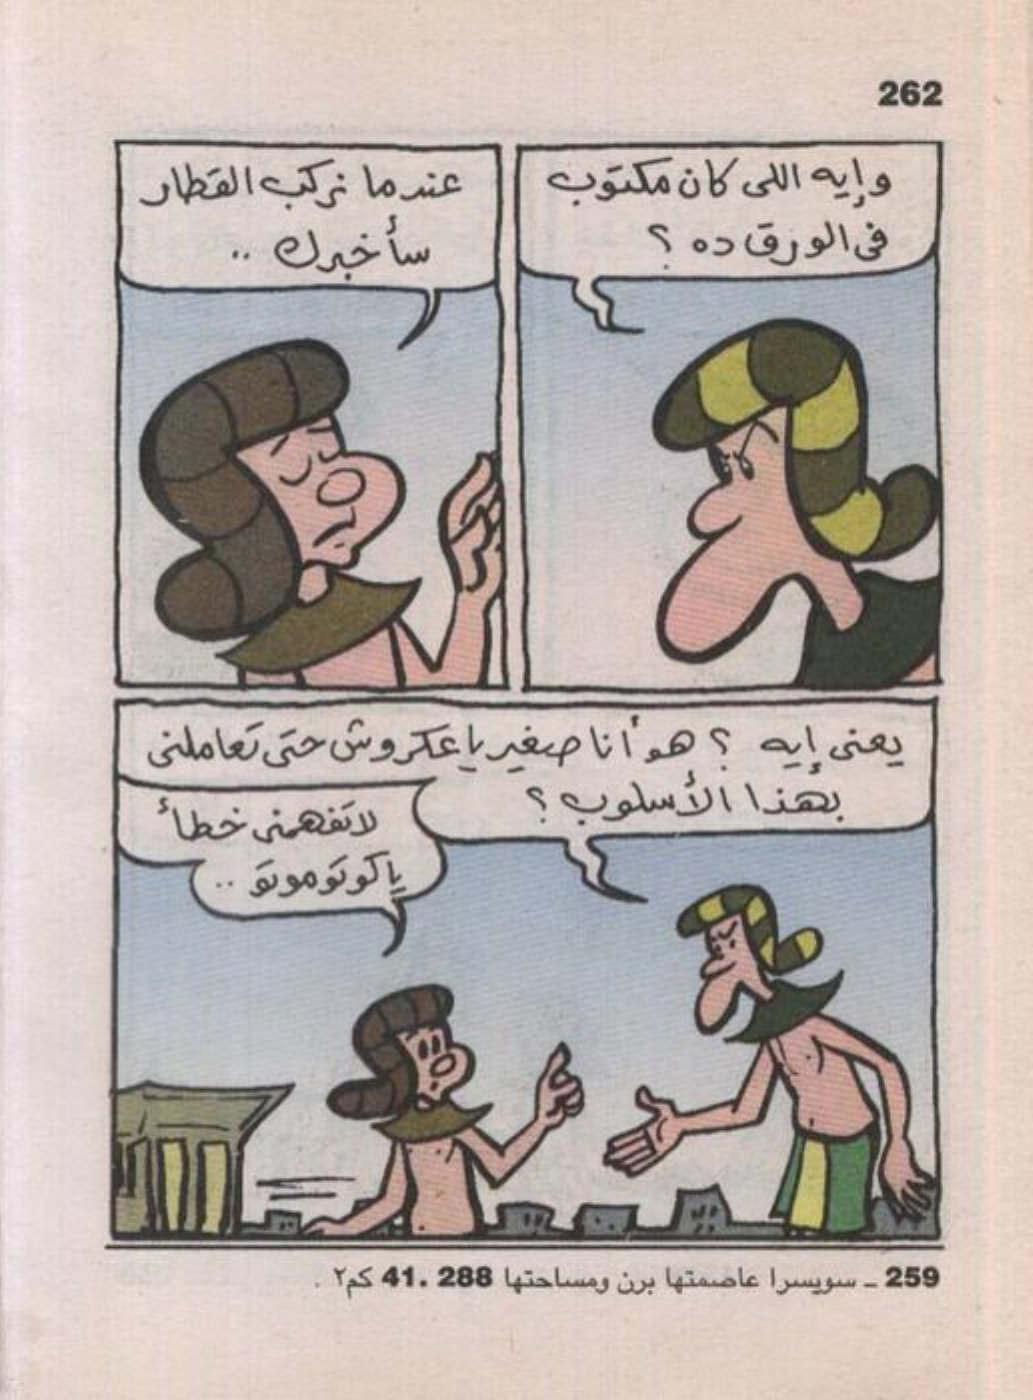 262
وإيه اللى كان مكتوب
فى الورق ده ؟
عندما نركب القطار
سأخبرك ..
يعنى إيه ؟ هو أنا صغير يا عكروش حتى تعاملنى
بهذا الأسلوب ؟
لا تفهمنى خطأ
يا كوتوموتو ..
259 ـ سويسرا عاصمتها برن ومساحتها 288 .41 كم٢ .